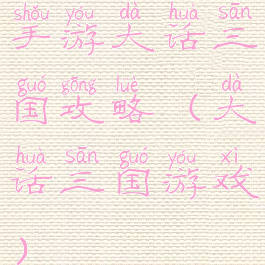 shǒu yóu dà huà sān
手游大话三
guó gōng luè dà
国攻略（大
huà sān guó yóu xì
话三国游戏
）